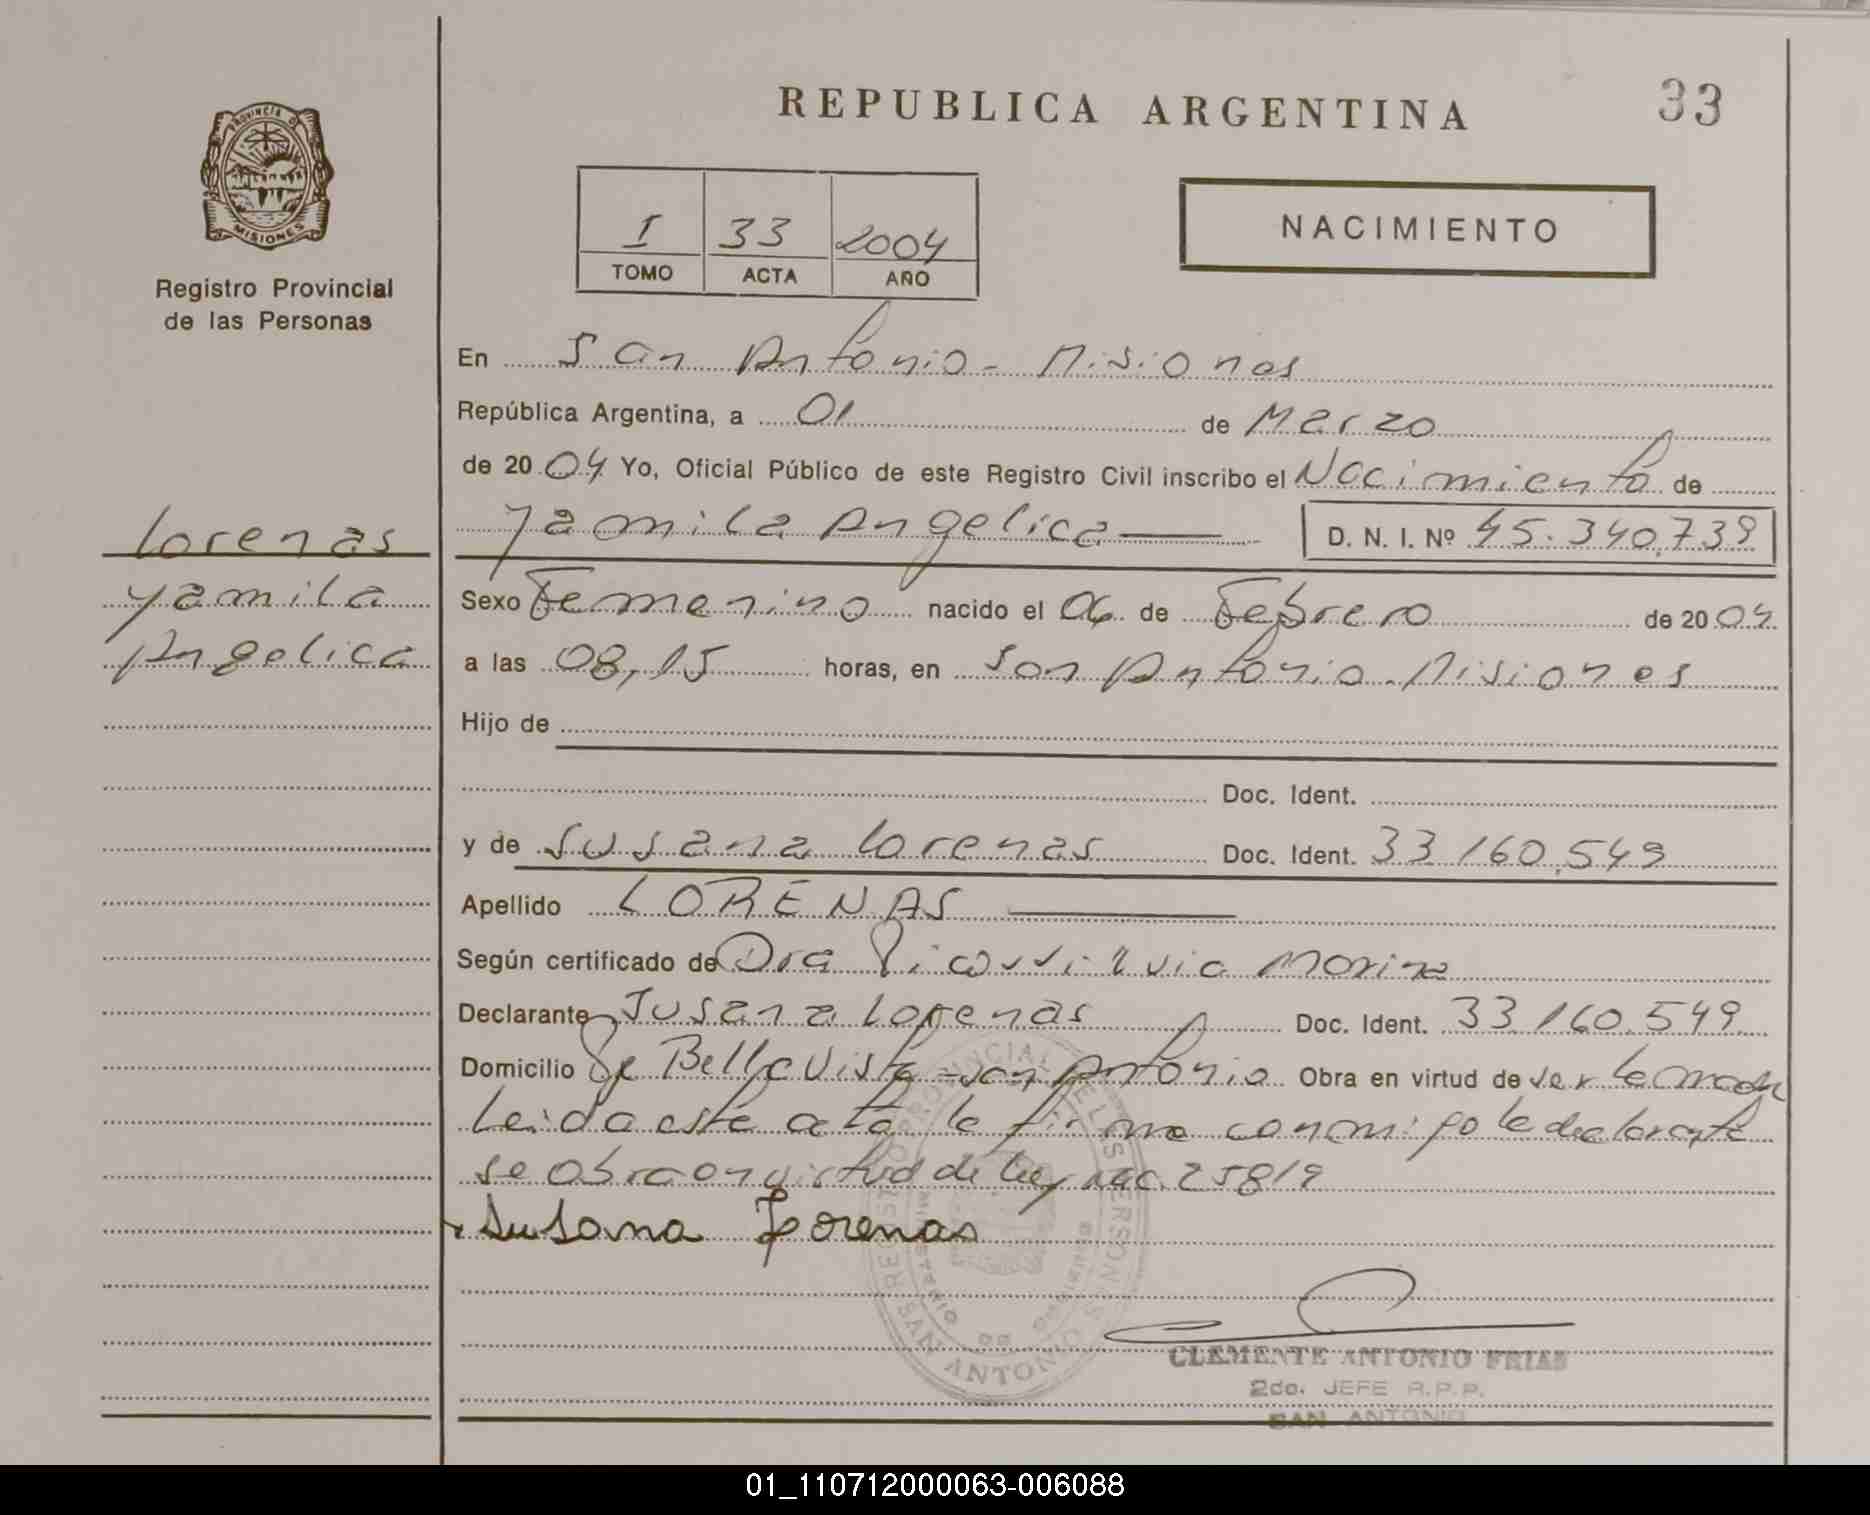 REPUBLICA ARGENTINA
33
PROVINCIA DE
MISIONES
Registro Provincial
de las Personas
I 33 2004
TOMO ACTA AÑO
NACIMIENTO
En San Antonio - Misiones
República Argentina, a 01 de Marzo
de 2004 Yo, Oficial Público de este Registro Civil inscribo el Nacimiento de
Yamila Angelica D. N. I. Nº 45.340.739
Lorenas
Yamila
Angelica
Sexo Femenino nacido el 06 de Febrero de 2004
a las 08,15 horas, en San Antonio - Misiones
Hijo de
Doc. Ident.
y de Susana Lorenas Doc. Ident. 33 160.549
Apellido LORENAS
Según certificado de Dra
Declarante Susana Lorenas Doc. Ident. 33.160.549
Domicilio Bella Vista - San Antonio Obra en virtud de ser la madre
Leida este acta la firma conmigo la declarante
se obra en virtud de ley nac. 25819
Susana Lorenas
REGISTRO PROVINCIAL DE LAS PERSONAS
MINISTERIO DE GOBIERNO
SAN ANTONIO
CLEMENTE ANTONIO FRIAS
2do. JEFE R.P.P.
SAN ANTONIO
01_110712000063-006088